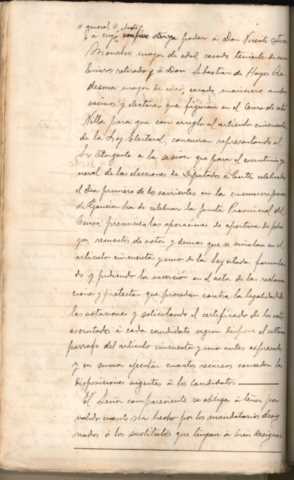 y a cuyo confiere otorga poder á Don Vicente
mayor de edad, casado, teniente de
retirado y á Don Sebastian de Hoyos
mayor de edad, casado, marinero ambos
vecinos y electores que figuran en el Censo de esta
Villa para que con arreglo al artículo cincuenta
de la Ley Electoral, concurran representando al
Sr Otorgante á la sesion que para el escrutinio ge-
neral de las elecciones de Diputados á Cortes celebradas
el dia primero de los corrientes en la circunscripcion
de ha de celebrar la Junta Provincial del
Censo, presencien las operaciones de apertura de plie-
gos, recuentos de votos y demas que se señalan en el
artículo cincuenta y uno de la ley citada formulan-
do y pidiendo la insercion en el acta de las reclama-
ciones y protestas que procedan contra la legalidad de
las votaciones y solicitando el certificado de los votos
escrutados á cada candidato segun dispone el ultimo
parrafo del artículo cincuenta y uno antes espresado
y en suma ejecutar cuantos recursos conceden las
disposiciones vigentes á los candidatos.
El Señor compareciente se obliga á tener por
valido cuanto sea hecho por los mandatarios desig-
nados ó los sustitutos que tengan á bien designar